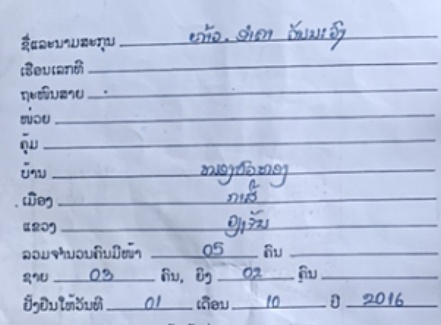 ຊື່ແລະນາມສະກຸນ ທ້າວ. ຄຳຕາ
ເຮືອນເລກທີ
ຖະໜົນສາຍ
ໜ່ວຍ
ຄຸ້ມ
ບ້ານ
ເມືອງ ກາສີ
ແຂວງ ວຽງຈັນ
ລວມຈຳນວນຄົນມີໜ້າ 05 ຄົນ
ຊາຍ 03 ຄົນ, ຍິງ 02 ຄົນ
ຢັ້ງຢືນໃຫ້ວັນທີ 01 ເດືອນ 10 ປີ 2016